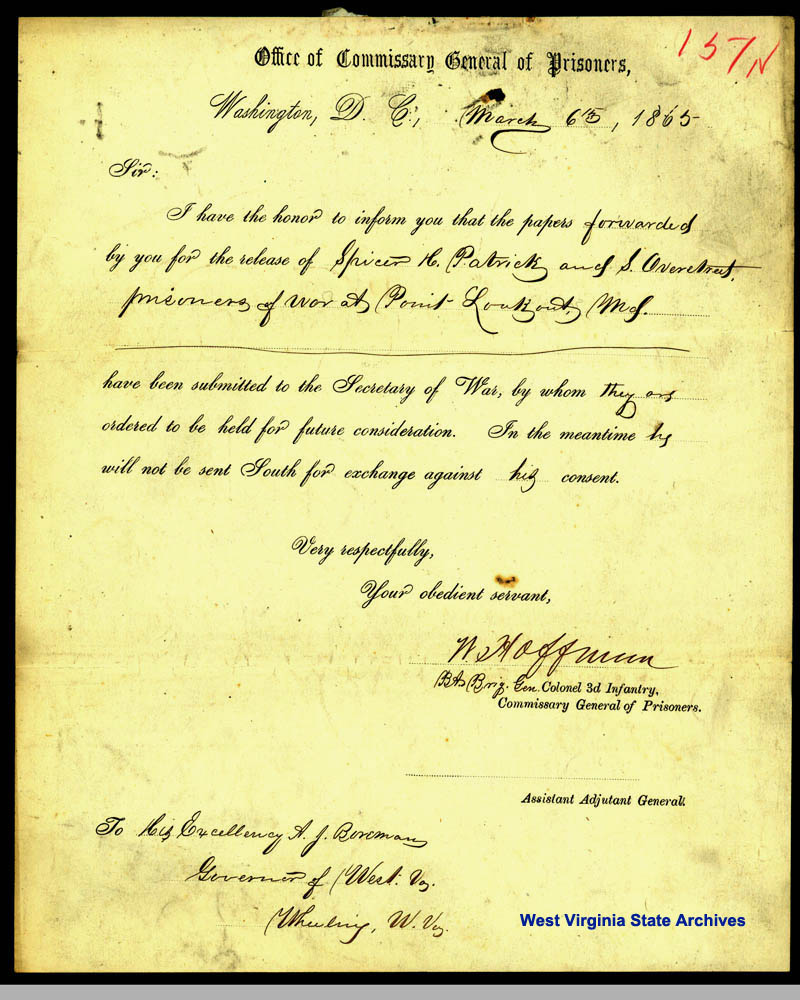 157 N
Office of Commissary General of Prisoners,
Washington, D. C., March 6th, 1865
Sir:
I have the honor to inform you that the papers forwarded
by you for the release of Spicer H. Patrick and S. Overstreet,
prisoners of war at Point Lookout, Md.
have been submitted to the Secretary of War, by whom they are
ordered to be held for future consideration. In the meantime he
will not be sent South for exchange against his consent.
Very respectfully,
Your obedient servant,
W. Hoffman
Bt. Brig. Gen. Colonel 3d Infantry,
Commissary General of Prisoners.
Assistant Adjutant General.
To His Excellency A. J. Boreman
Governor of West. Va.
Wheeling, W. Va.
West Virginia State Archives